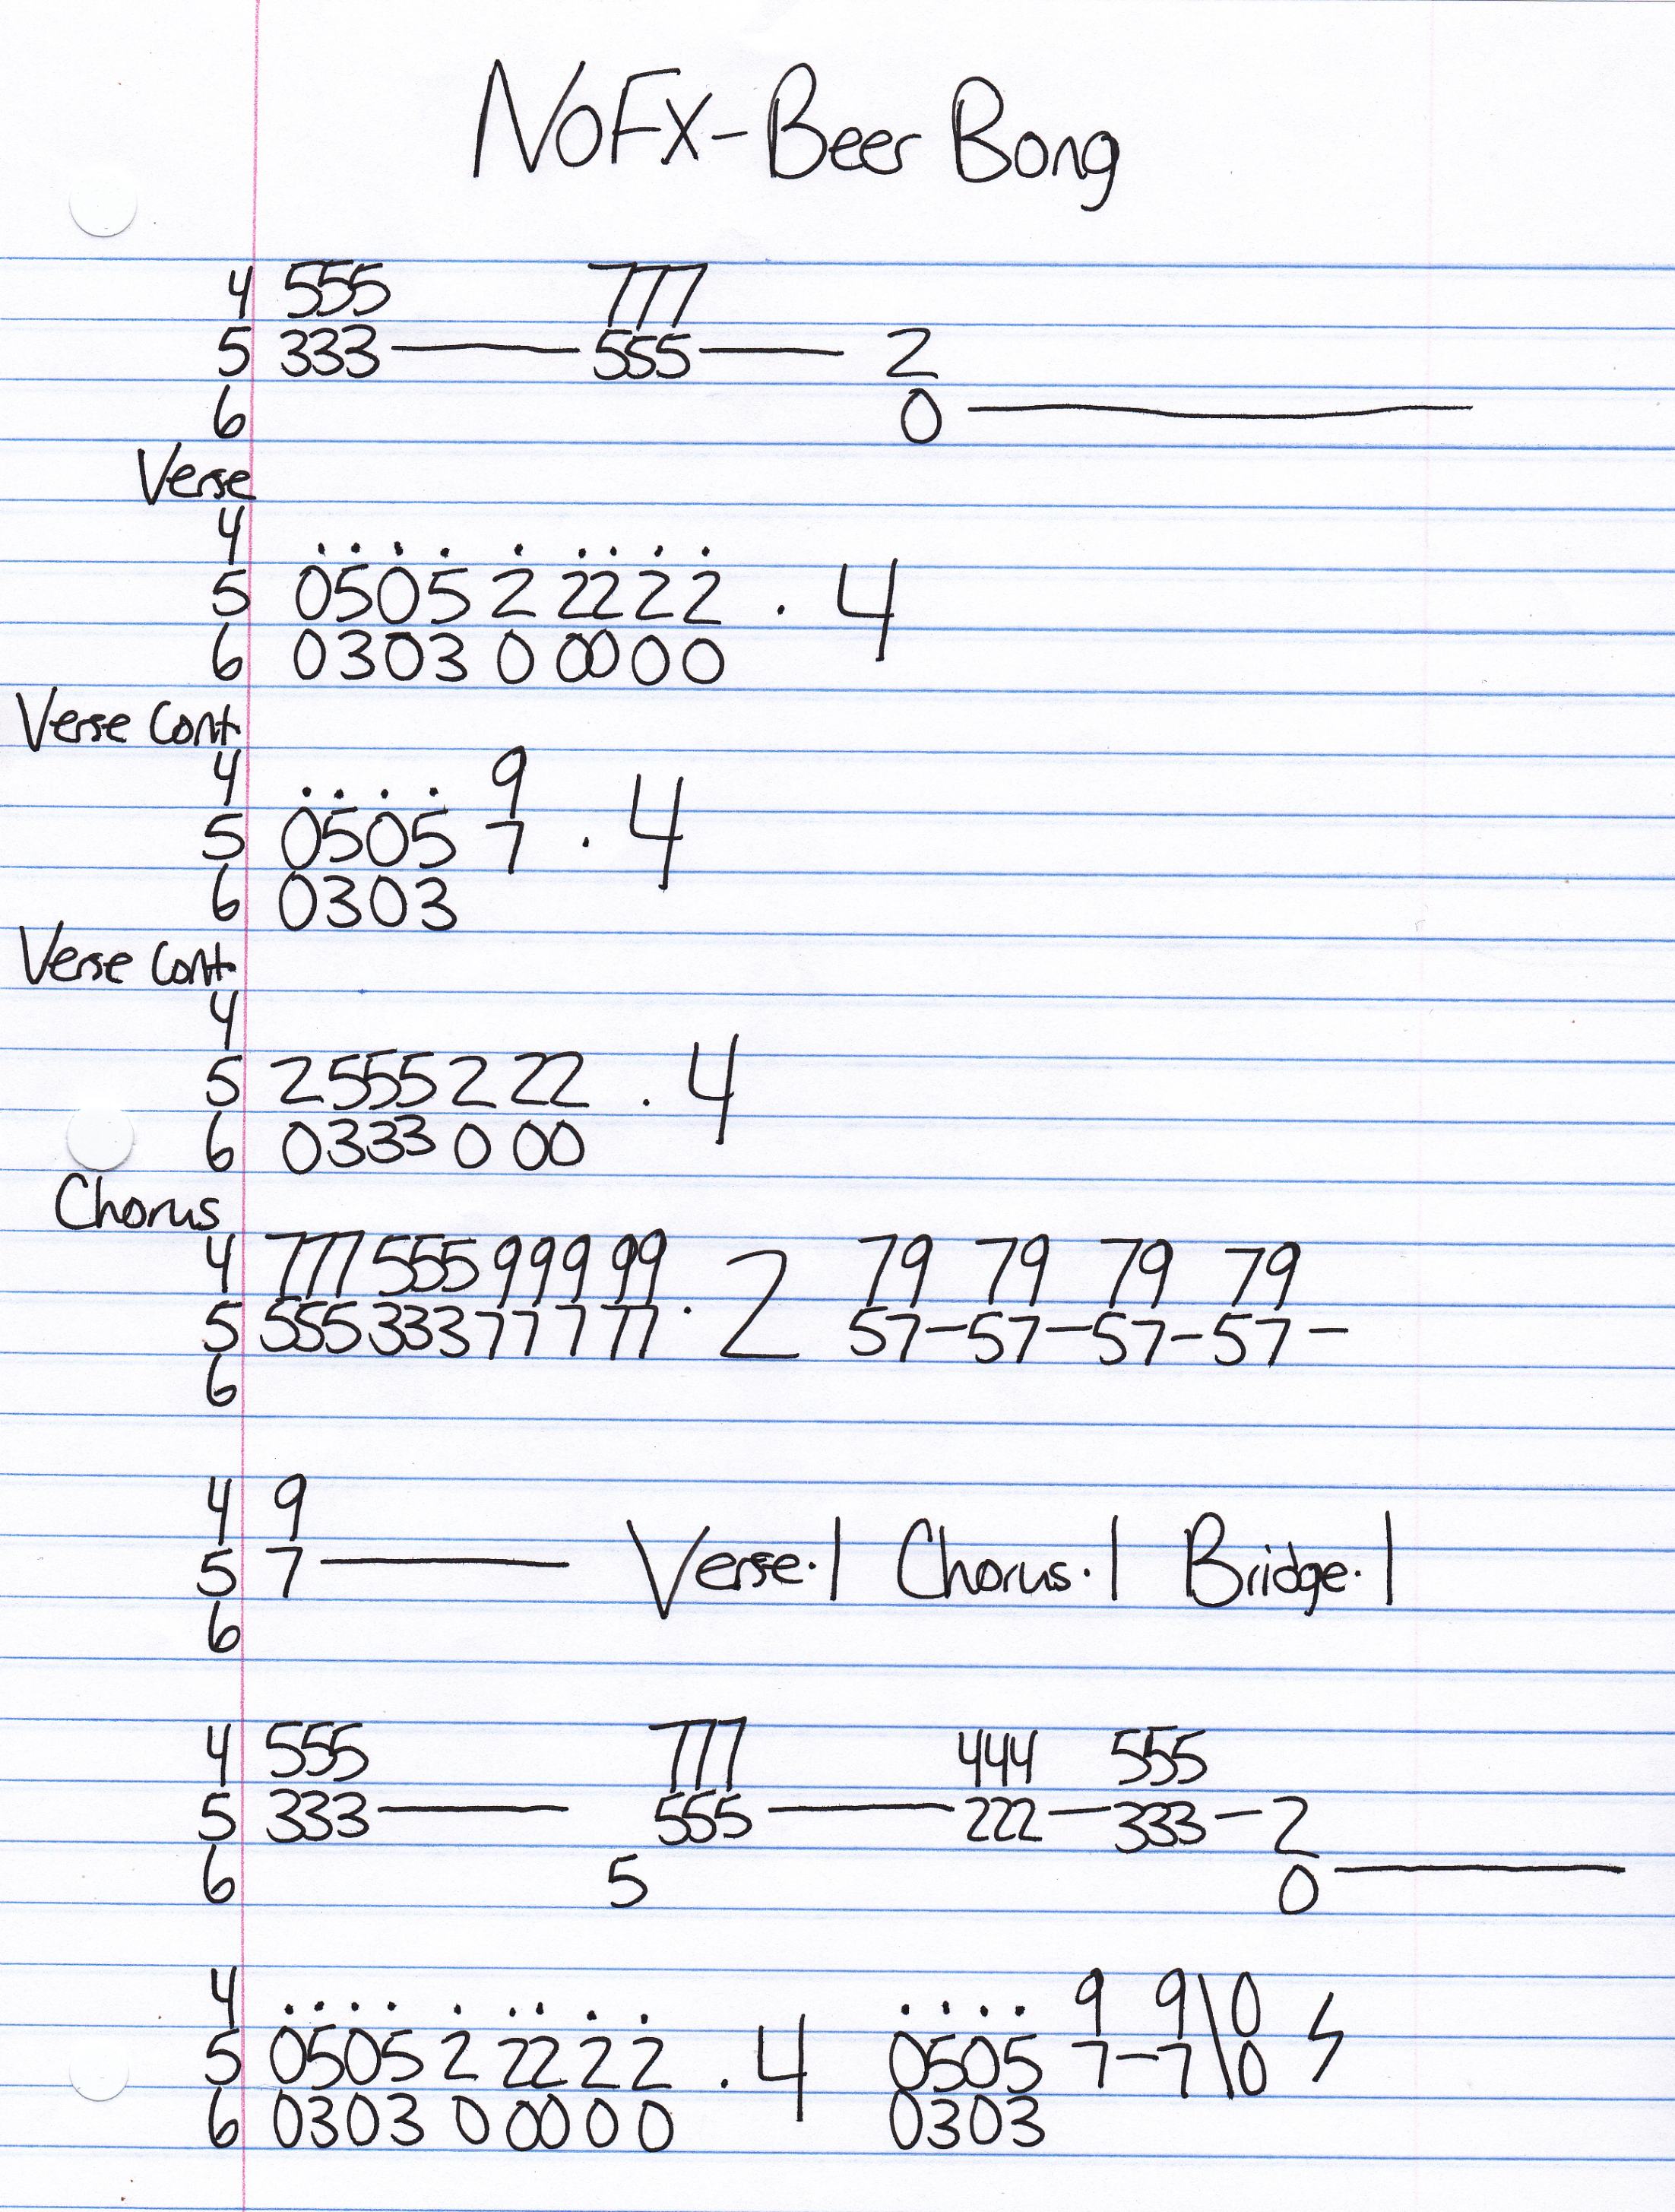 NOFX-Beer Bong
4 555 777
5 333 — 555 — 2
6 0 —
Verse
4 . . . . . . . . .
5 0505 2 22 2 2 . 4
6 0303 0 00 0 0
Verse Cont
4 . . . . 9
5 0505 7 . 4
6 0303
Verse Cont
4
5 2555 2 22 . 4
6 0333 0 00
Chorus
4 777 555 999 99 79 79 79 79
5 555 333 777 77 . 2 57-57-57-57-
6
4 9
5 7 — Verse.1 Chorus.1 Bridge.1
6
4 555 777 444 555
5 333 — 555 — 222-333-2
6 5 0 —
4 . . . . . . . . . . . . . 9 9\0
5 0505 2 22 2 2 . 4 0505 7-7\0
6 0303 0 00 0 0 0303